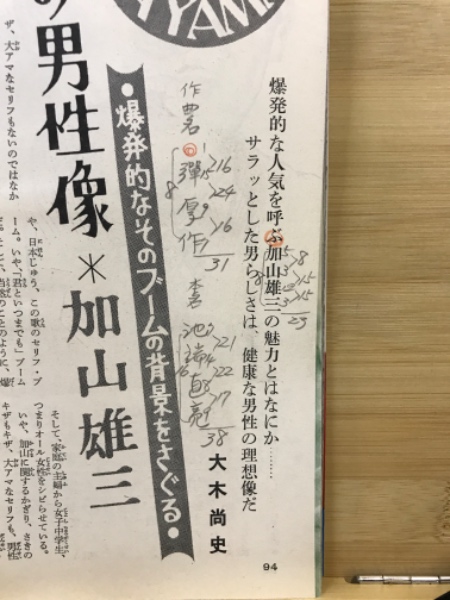 YAMA
の男性像＊加山雄三
●爆発的なそのブームの背景をさぐる●
爆発的な人気を呼ぶ加山雄三の魅力とはなにか……
サラッとした男らしさは、健康な男性の理想像だ
大木尚史
作曲名
彈厚作
16
24
16
31
本名
池端直亮
21
22
17
38
8
15
15
23
ザ、大アマなセリフもないのではなか
や、日本じゅう、この歌のセリフ・ブ
ーム。いや、『君といつまでも』ブーム
そして、家庭の主婦から女子中学生、
つまりオール女性をシビらせている。
いや、加山に関するかぎり、さきの
キザもキザ、大アマなセリフも、男性
94